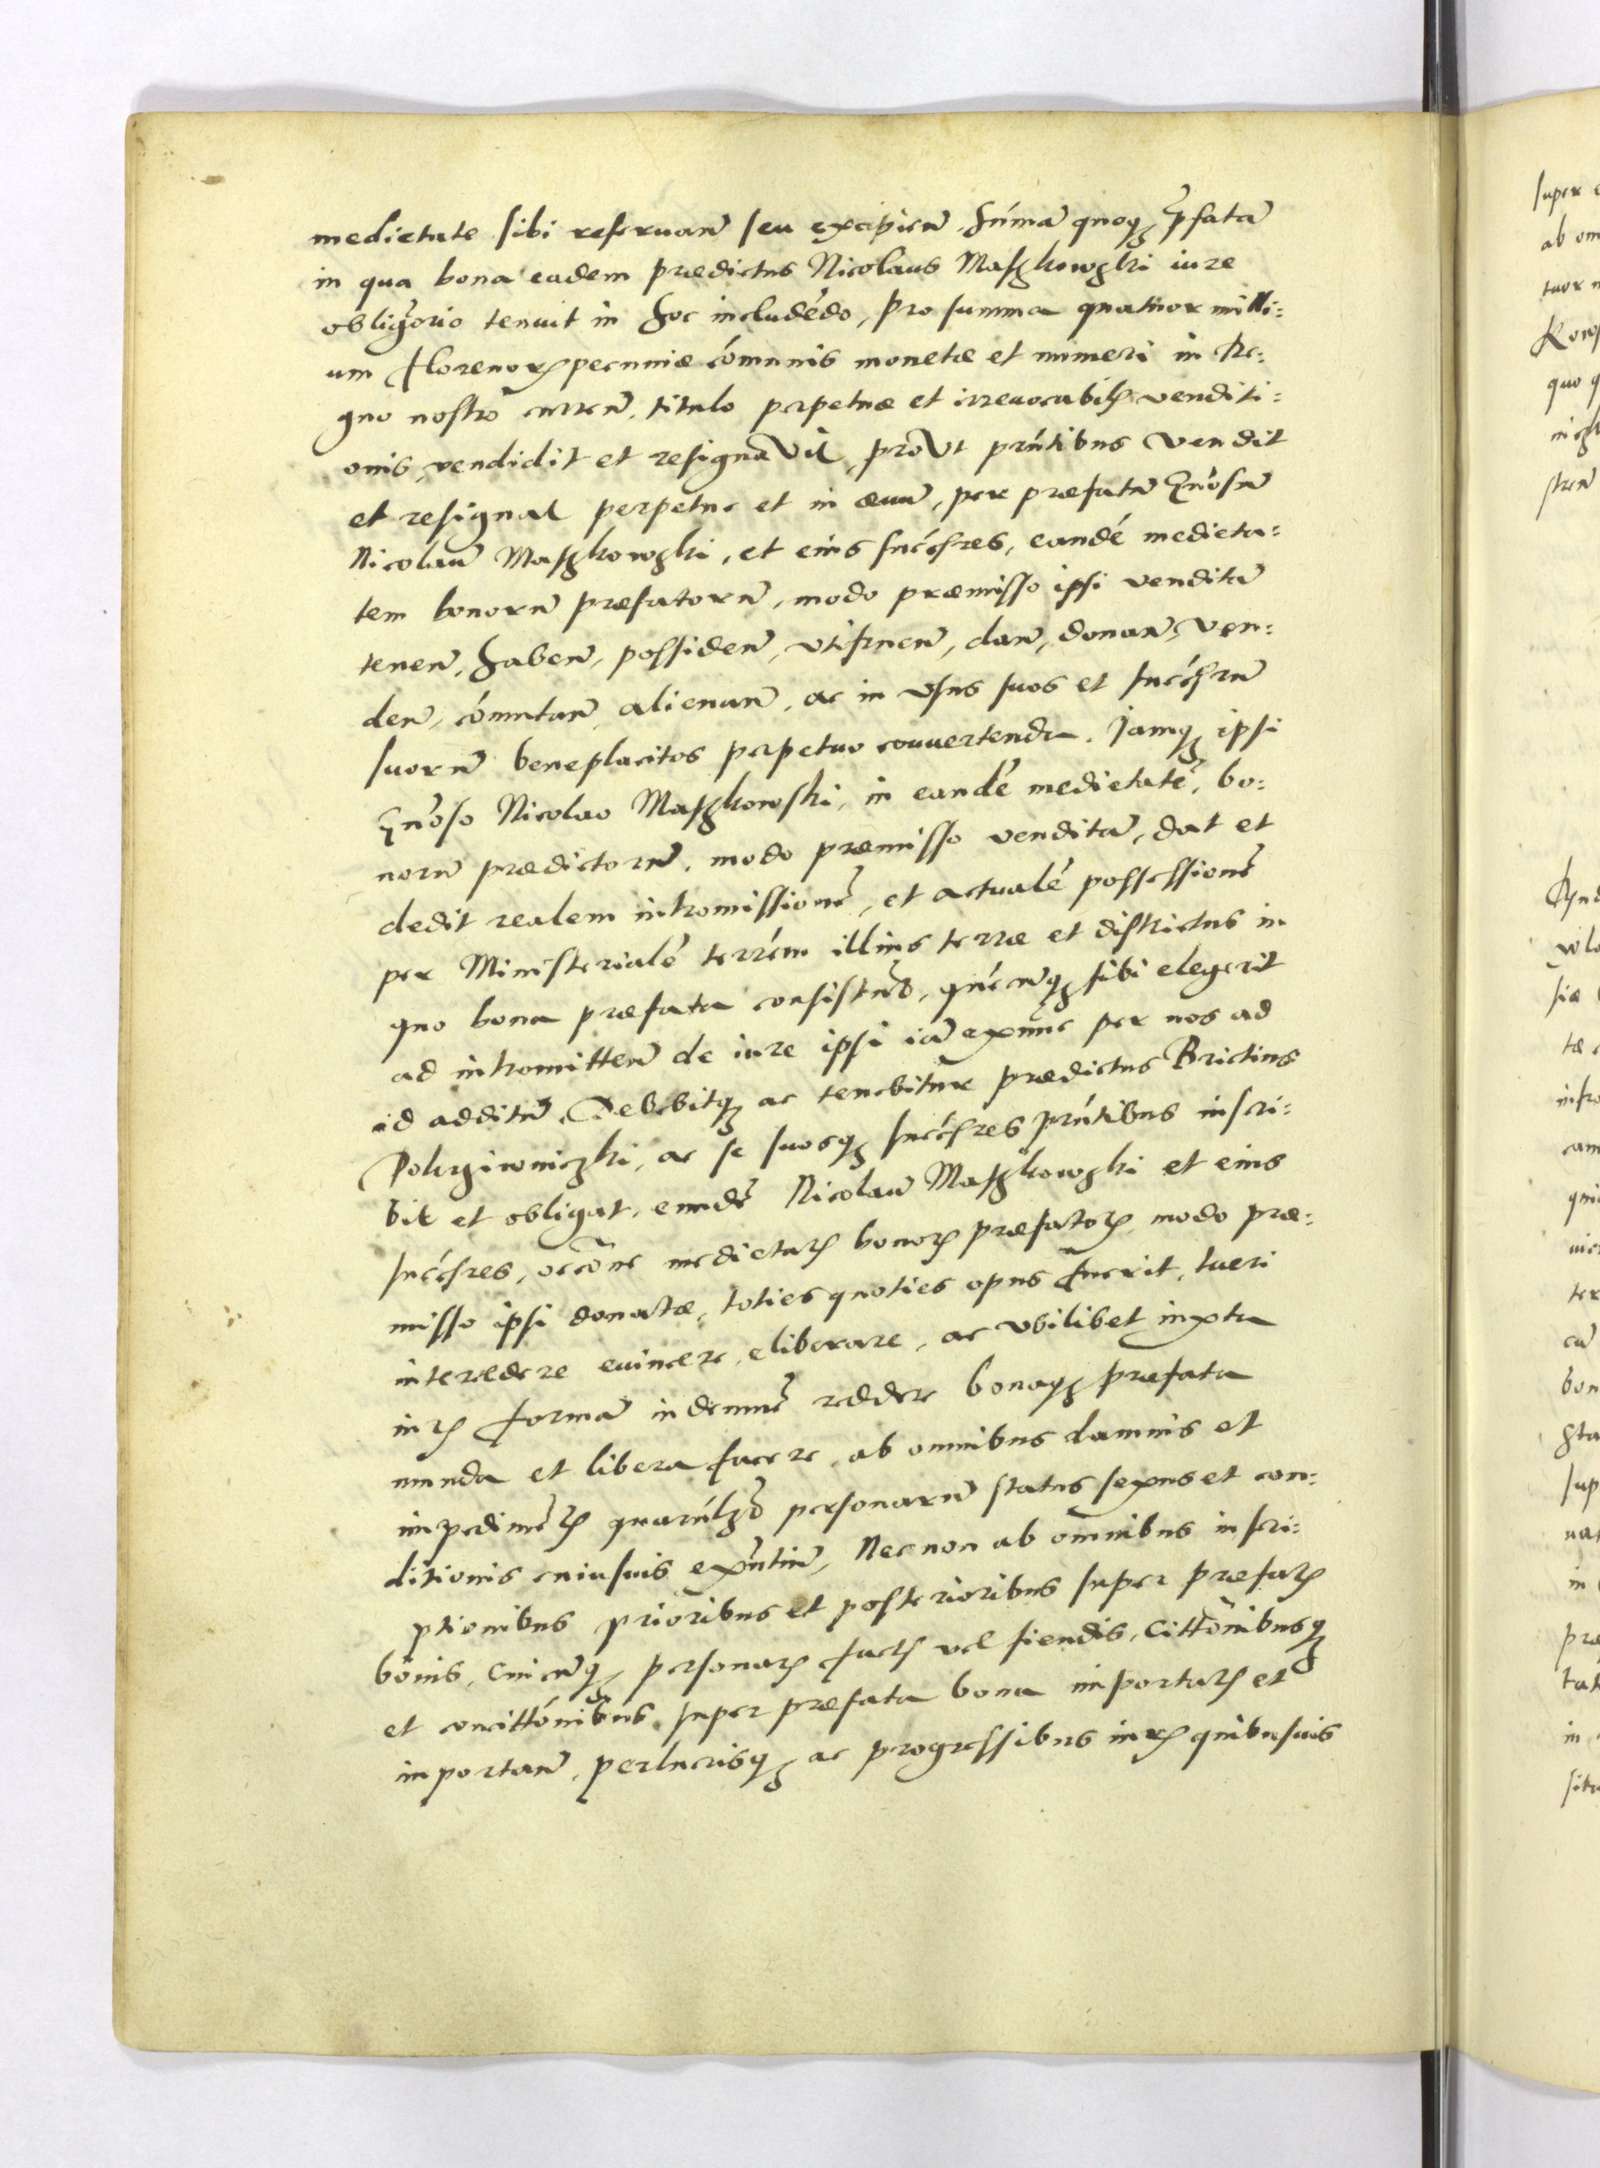 medietate sibi reseruan̄ seu excipien̄. Sum̄a quoqȝ p̄fata
in qua bona eadem prædictus Nicolaus Maszkowski iure
oblig̃orio tenuit in hoc includẽdo, pro summa quatuor milli=
um florenorꝝ pecuniæ cõmunis monetæ et numeri in Re=
gno nostro curren̄. titulo perpetuæ et irreuocabilꝭ venditi=
onis, vendidit et resignaVit, proVt pñtibus Vendit
et resignat perpetue et in æuū, per præfatū gñosū
Nicolaū Maszkowski, et eius succ̃sres, eandẽ medieta=
tem bonorū præfatorū, modo præmisso ipsi venditā
tenen̄, haben̄, possiden̄, vtifruen̄, dan̄, donan̄, ven=
den̄, cõmutan̄, alienan̄, ac in vsus suos et succ̃srū
suorū beneplacitos perpetuo conuertendā. Iamqȝ ipsi
gñoso Nicolao Maszkowski, in eandẽ medietatẽ, bo=
norū prædictorū, modo præmisso venditā, dat et
dedit realem intromissionẽ, et actualẽ possessionẽ
per Ministerialẽ terrẽm illius terræ et districtus in
quo bona præfata consistũt, quẽcunqȝ sibi elegerit
ad intromitten̄ de iure ipsi iā exnũc per nos ad
id additū. Debebitqȝ ac tenebitur prædictus Brictius
ac se suosqȝ succ̃sres pñtibus inscri=
bit et obligat, eundẽ Nicolaū Maszkowski et eius
succ̃sres, occõne medietatꝭ bonorꝝ præfatorꝝ modo præ=
misso ipsi donatæ, toties quoties opus fuerit, tueri
intercedere euincere, eliberare, ac vbilibet iuxta
iurꝭ formā indemnẽ reddere bonaqȝ præfata
munda et libera facere, ab omnibus damnis et
impedimẽtꝭ quarũlȝt personarū status sexus et con=
ditionis cuiusuis exñtiū, Necnon ab omnibus inscri=
ptionibus prioribus et posterioribus super præfatꝭ
bonis, cuicūqȝ personarꝝ factꝭ vel fiendis, Cittõnibusqȝ
et concittõnibus super præfata bona importatꝭ et
importan̄, perlucrisqȝ ac progressibus iurꝭ quibusuis
super
ab om
quo q
bon
sup
in